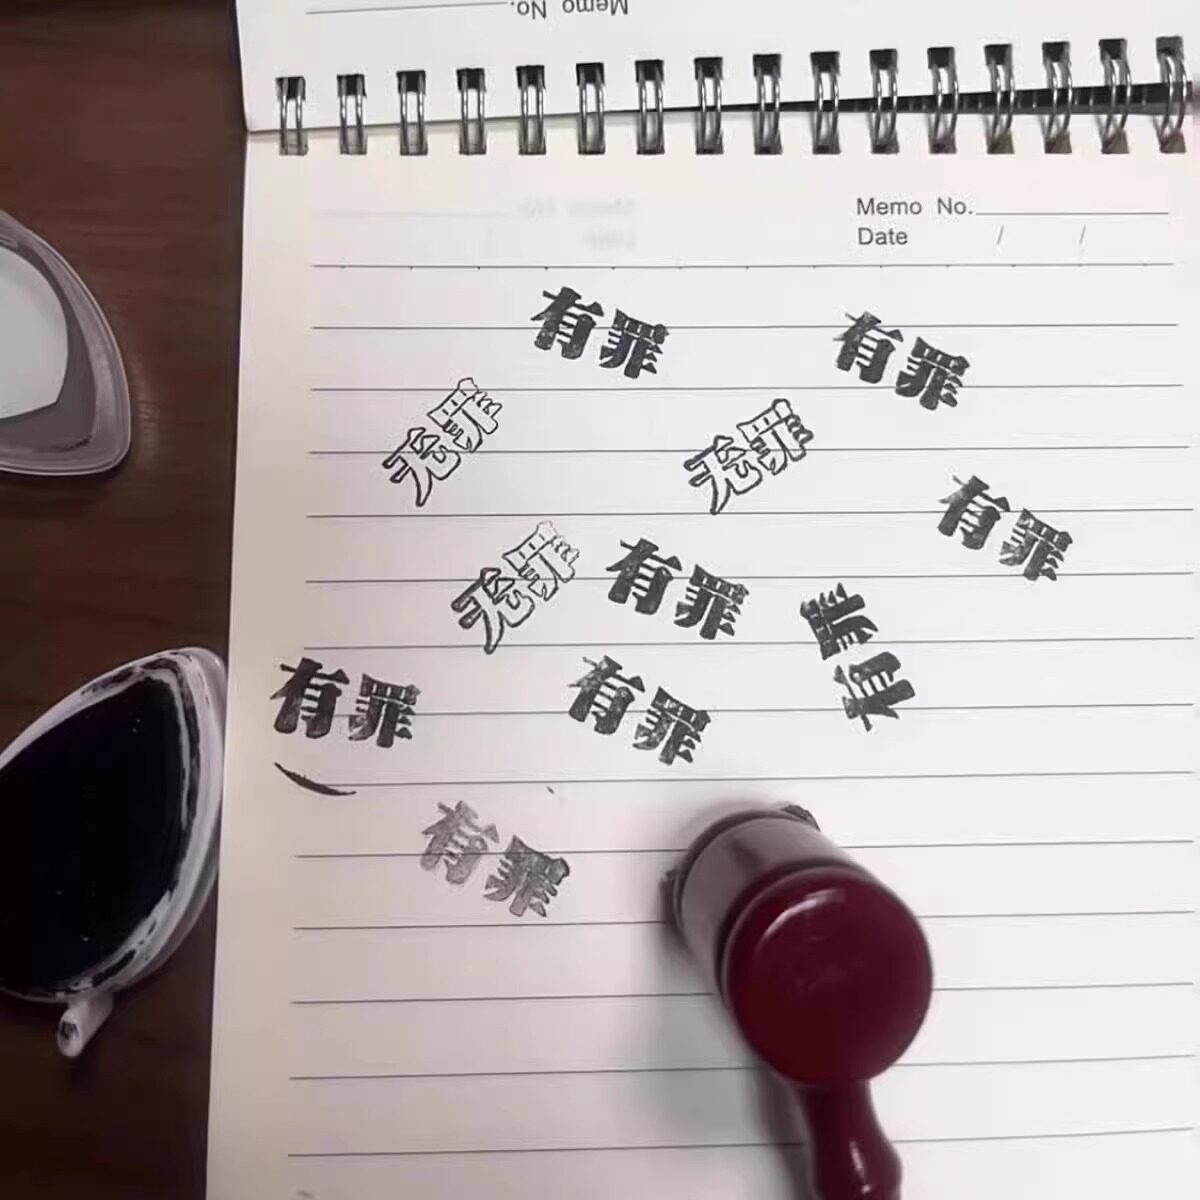 Memo No.
Memo No.
Date / /
有罪
有罪
无罪
无罪
有罪
无罪
有罪
有罪
有罪
有罪
有罪